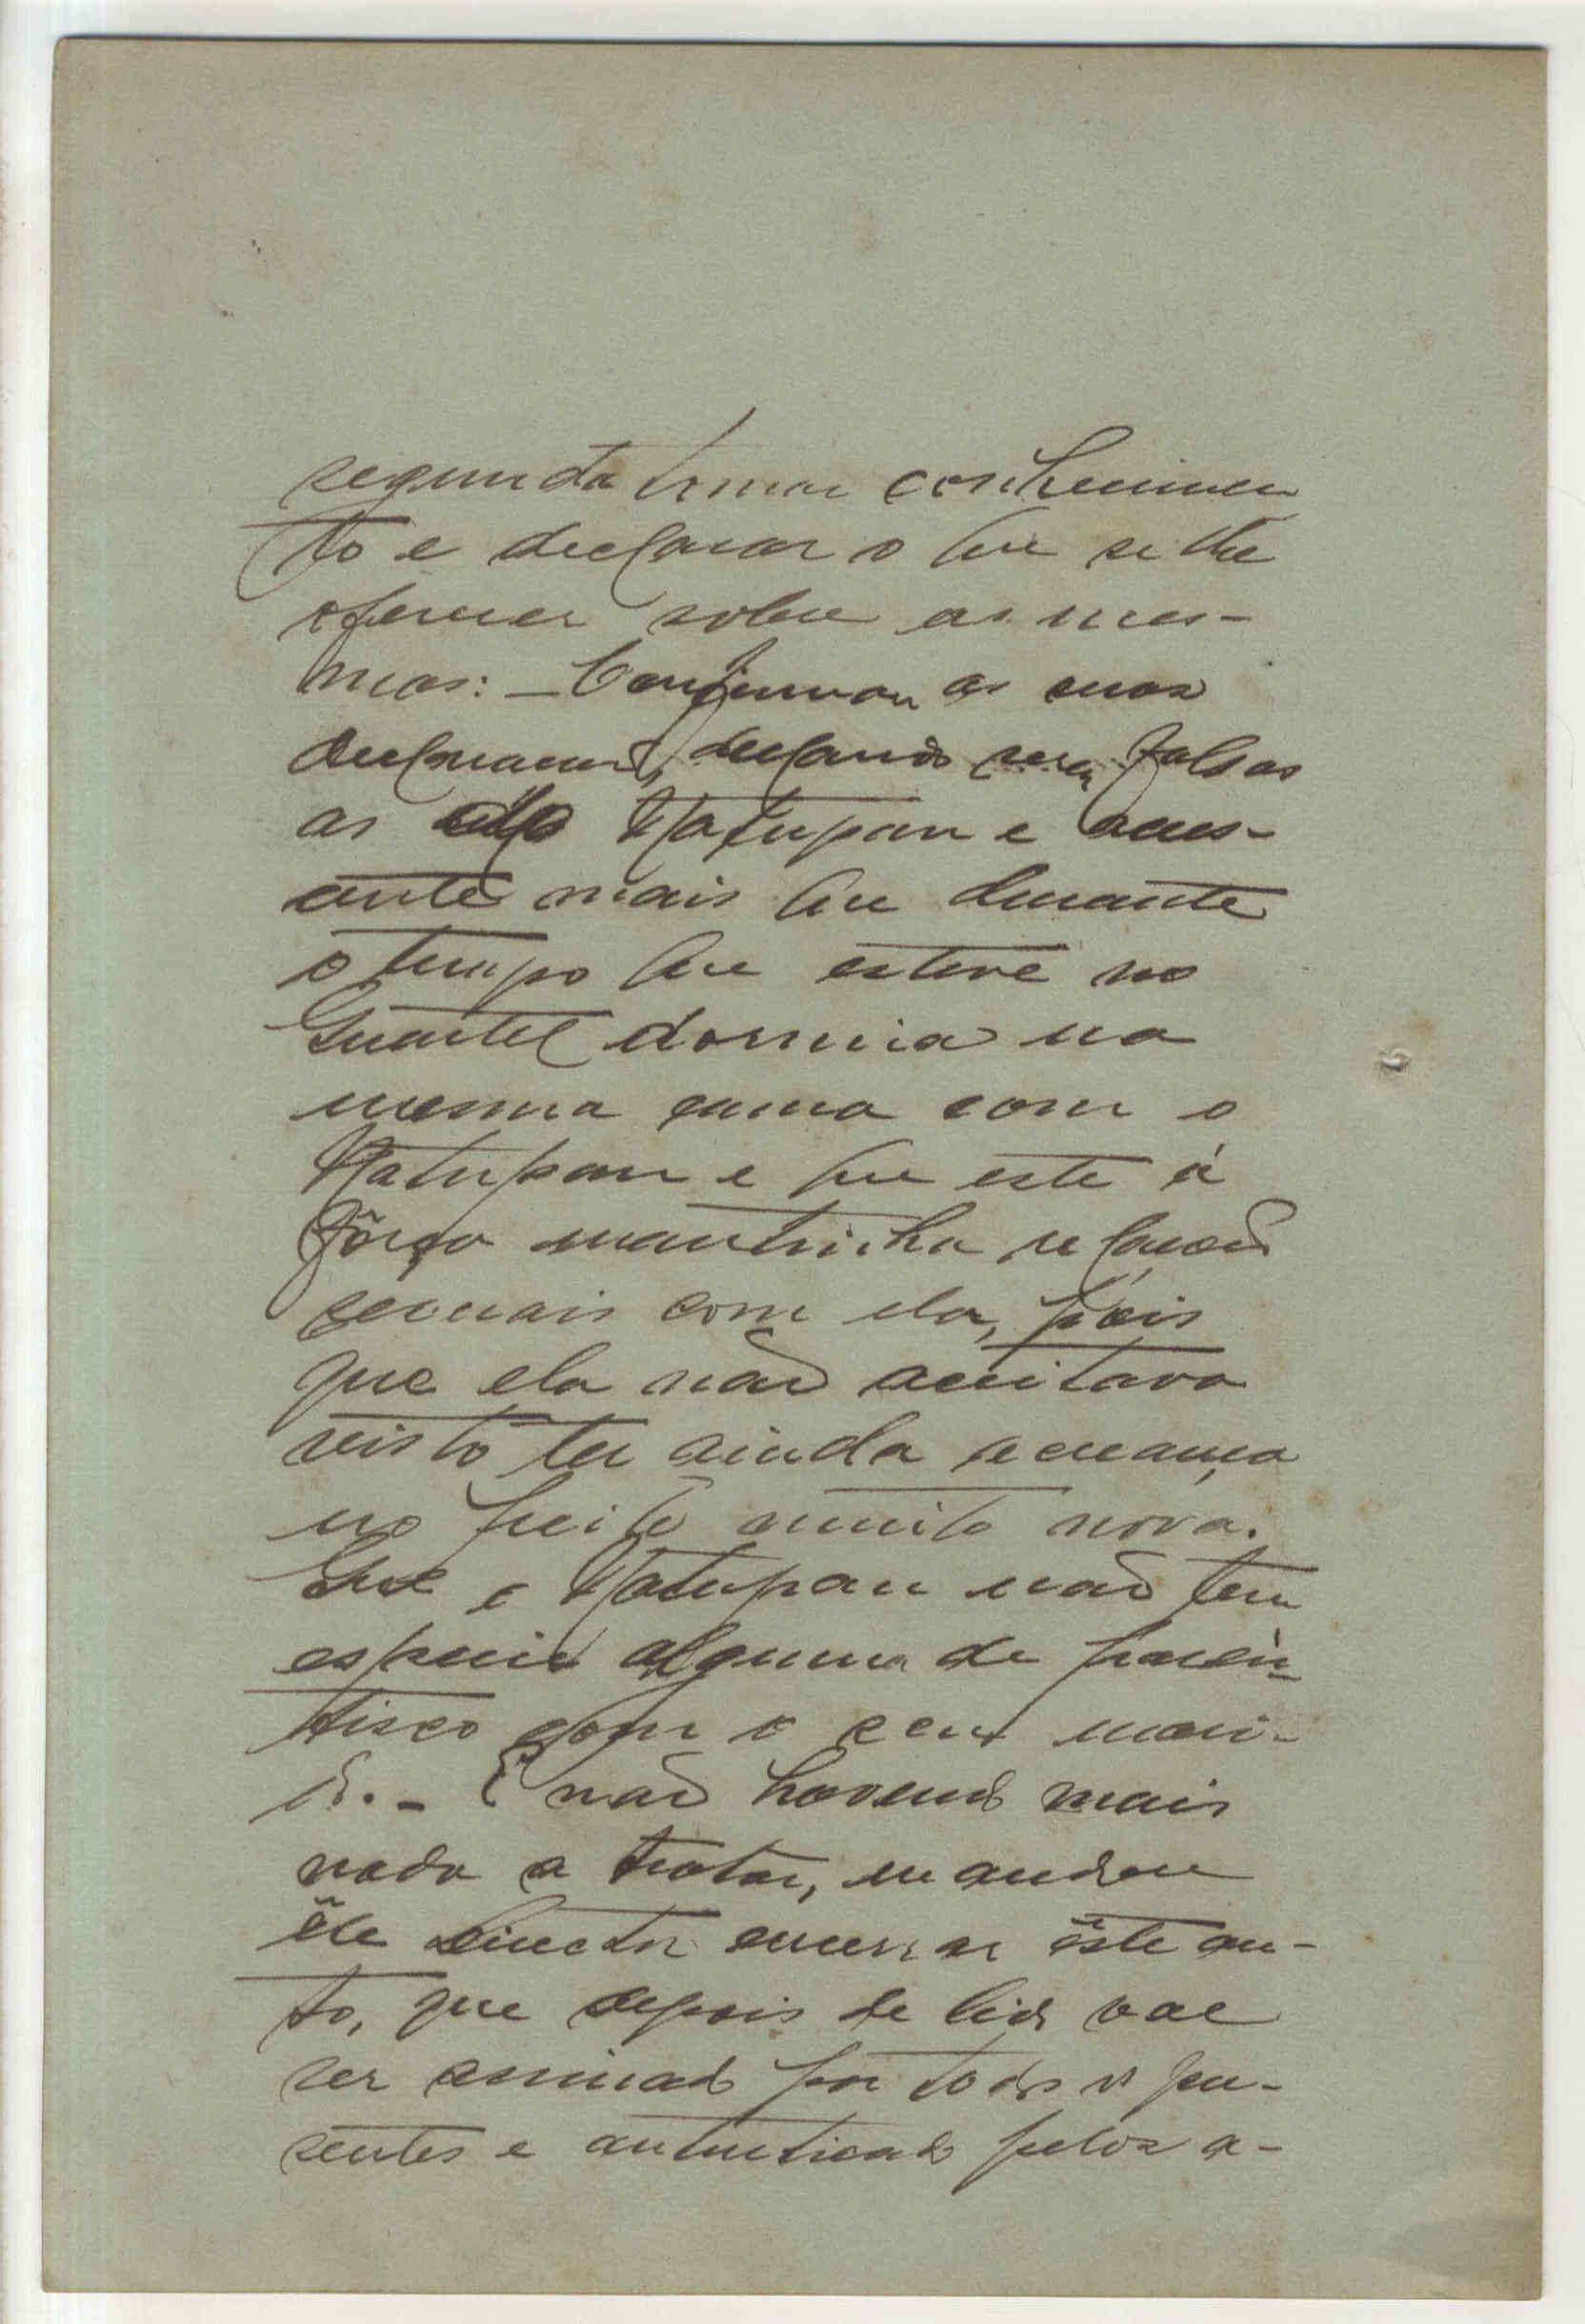 segunda tomar conhecimen
to e declarar o que se lhe
oferecer sobre as mes-
mas: — Confirmou as suas
declarações, declarando serem falsas
as do Katupan e acres-
cente mais que durante
o tempo que esteve no
Quartel dormia na
mesma cama com o
Katupan e que este á
fôrça mantinha relações
sexuais com ela, pois
que ela não aceitava
visto ter ainda a creança
no peito muito nova.
Que o Katupan não tem
especie alguma de paren-
tisco com o seu mari-
do. — E não havendo mais
nada a tratar, mandou
êle Director encerrar êste au-
to, que depois de lido vae
ser assinado por todos os pre-
sentes e autenticado pelos a-